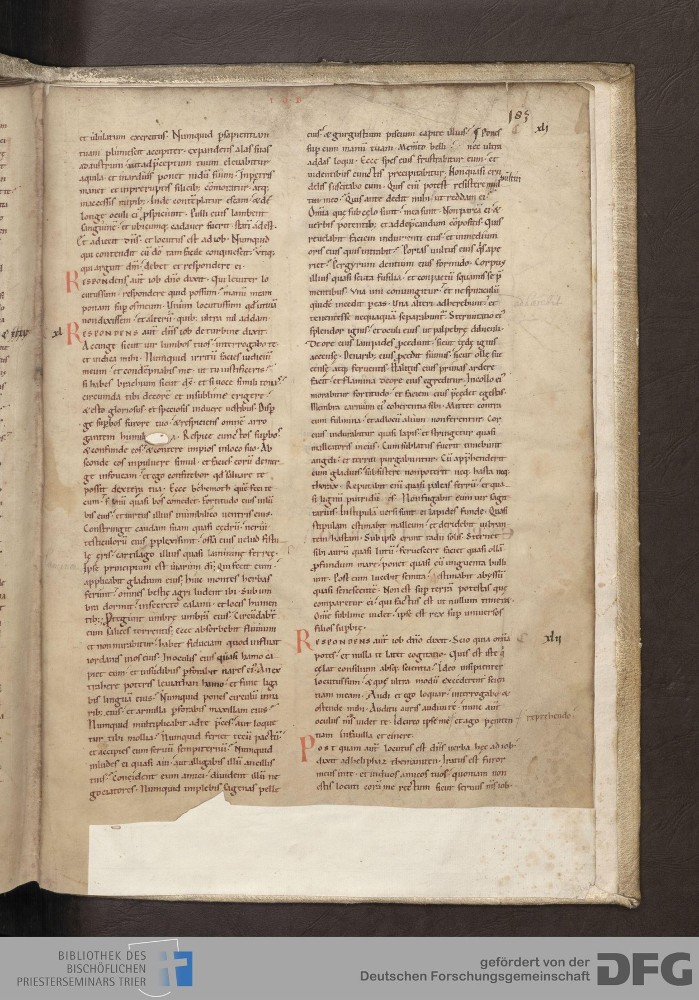 IOB
185
et ululatum exercitus. Numquid p sapientiam
tuam plumescit accipiter. expandens alas suas
ad austrum. aut ad p̄ceptum tuum elevabitur
aquila et in arduis ponet nidum suum. In petris
manet et in preruptis silicib; cōmoratur. atq;
inaccessis rupib; Inde contēplatur escam. & de
longe oculi ei pspiciunt. Pulli eius lambent
sanguinē. et ubicumq; cadaver fuerit. statī adest.
Et adiecit dn̄s. et locutus est ad iob. Numquid
qui contendit cū dō tam facile conquiescit. Utiq;
qui arguit dm̄. debet et respondere ei.
Respondens aut iob dn̄o dixit. Qui leviter lo
cutus sum. respondere quid possum? manū meam
ponam sup os meum. Unum locutus sum qd utinā
non dixissem. et alterū. quib; ultra nil addam.
xl
Respondens aut dn̄s iob de turbine dixit.
Accinge sicut vir lumbos tuos. interrogabo te.
et indica mihi. Numquid irritū facies iudiciū
meum. et condēpnabis me. ut tu iustificeris.
si habes brachium sicut ds̄. et si voce simili tonas.
circumda tibi decorē et in sublime erigere.
& esto gloriosus. et speciosis induere vestibus. Disp
ge supbos furore tuo. & respiciens omnē arro
gantem humilia. Respice cunctos supbos
& confunde eos. & contere impios in loco suo. Ab
sconde eos in pulvere simul. et facies eorū demer
ge in foveam. et ego confitebor qd salvare te
possit dextera tua. Ecce behemoth quē feci te
cum. fenū quasi bos comedet. Fortitudo eius in lū
bis eius. et virtus illius in umbilico ventris eius.
Constringit caudam suam quasi cedrū. nervi
testiculorū eius pplexi sunt. ossa eius velud fistu
le eris. cartilago illius quasi lamine ferree.
Ipse principium est viarum di. qui fecit eum.
applicabit gladium eius. huic montes herbas
ferunt. omnes bestie agri ludent ibi. Sub um
bra dormit. in secreto calami. et locis humen
tib; Protegunt umbre umbrā eius. Circūdabt
eum salices torrentis. ecce absorbebit fluvium
et non mirabitur. habet fiduciam quod influat
iordanis in os eius. In oculis eius quasi hamo ca
piet eum. et in sudibus pforabit nares ei. An ex
trahere poteris leviathan hamo. et fune liga
bis linguā eius. Numquid pones circulū in na
rib; eius. et armilla pforabis maxillam eius.
Numquid multiplicabit adte p̄ces. aut loquet
tur tibi mollia. Numquid feriet tecū pactū.
et accipies eum servū sempiternū. Numquid
illudes ei quasi avi. aut alligabis illū ancillis
tuis. Concident eum amici. divident illū ne
gociatores. Numquid implebis sagenas pelle
eius. & gurgustium piscium capite illius. Pone
xli
sup eum manū tuam. Memto belli. nec ultra
addas loqui. Ecce spes eius frustrabitur eum. et
videntibus cunctis precipitabitur. Non quasi cru
delis suscitabo eum. Quis enī potest resistere
vultui
meo. Quis ante dedit mihi. ut reddam ei.
Omia que sub celo sunt. mea sunt. Non parcā ei. &
verbis potentib; et ad depcandum cōpositis. Quis
revelabit faciem indumenti eius. et in medium
oris eius quis intrabit. Portas vultus eius qs ape
riet. p gyrum dentium eius formido. Corpus
illius quasi scuta fusilia. et compactū squamis se p
mentibus. Una uni coniungitur. et ne spiraculū
quidē incedit p eas. Una alteri adherebunt. et
tenentes se nequaquā separabunt. Sternutatio ei
splendor ignis. et oculi eius ut palpebre diluculi.
De ore eius lampades pcedunt. sicut tede ignis
accense. De narib; eius pcedit fumus. sicut olle suc
cense atq; ferventis. Halitus eius prunas ardere
facit. et flamma de ore eius egreditur. In collo ei
morabitur fortitudo. et faciem eius p̄cedet egestas.
Membra carnium ei coherentia sibi. Mittet contra
eum fulmina. et ad locū alium non ferentur. Cor
eius indurabitur quasi lapis. et stringetur quasi
malleatoris incus. Cum sublatus fuerit timebunt
angeli. et territi purgabuntur. Cū app̄henderit
eum gladius. subsistere non poterit. neq; hasta neq;
thorax. Reputabit enī quasi paleas ferrū. et qua
si lignū putridū es. Non fugabit eum vir sagit
tarius. In stipulā versi sunt ei lapides funde. Quasi
stipulam estimabit malleum. et deridebit vibran
tem hastam. Sub ipso erunt radii solis. Sternet
sibi aurū quasi lutū. fervescere faciet quasi ollā
pfundum mare. ponet quasi cū unguenta bulli
unt. Post eum lucebit semita. estimabit abyssū
quasi senescentē. Non est sup terrā potestas que
comparetur ei. qui factus est ut nullum timeret.
Omē sublime videt. ipse est rex sup universos
filios supbie.
xlii
Respondens aut iob dn̄o dixit. Scio quia omīa
potes. et nulla te latet cogitatio. Quis est iste q
celat consilium absq; scientia. Ideo insipienter
locutus sum. & que ultra modū excederent scien
tiam meam. Audi et ego loquar. interrogabo &
ostende mihi. Auditu auris audivi te. nunc aut
oculus ms videt te. Idcirco ipse me et ago peniten
tiam in favilla et cinere.
reprehendo.
Post quam aut locutus est dn̄s verba hec ad iob.
dixit ad heliphaz themaniten. Iratus est furor
meus in te. et in duos amicos tuos. quoniam non
estis locuti corā me rectum sicut servus ms iob.
BIBLIOTHEK DES
BISCHÖFLICHEN
PRIESTERSEMINARS TRIER
gefördert von der
Deutschen Forschungsgemeinschaft
DFG